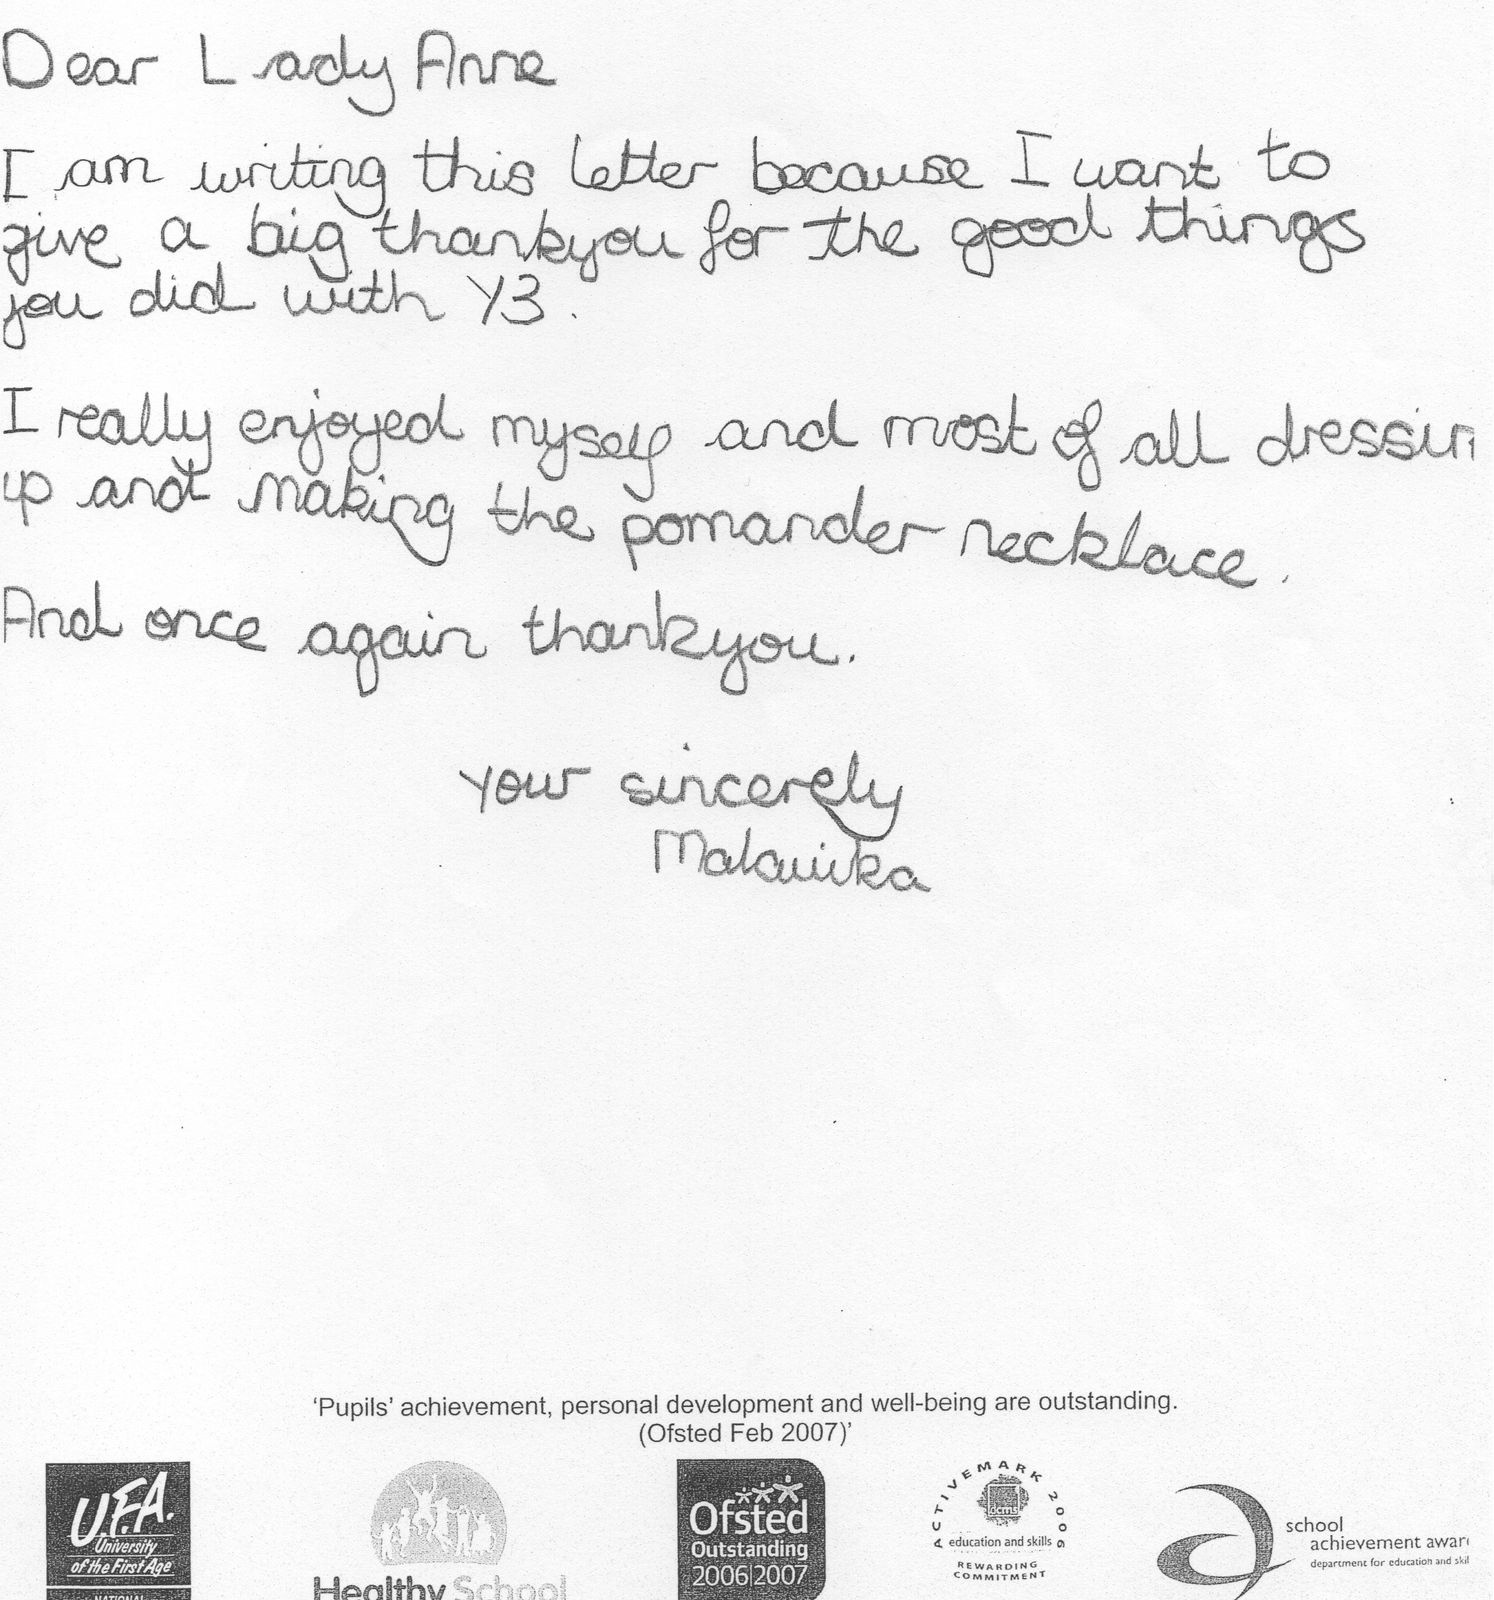 Dear Lady Anne
I am writing this letter because I want to
give a big thankyou for the good things
you did with Y3.
I really enjoyed myself and most of all dressin
up and making the pomander necklace.
And once again thankyou.
your sincerely
Malavika
'Pupils' achievement, personal development and well-being are outstanding.
(Ofsted Feb 2007)'
U.F.A.
University
of the First Age
NATIONAL
Healthy School
Ofsted
Outstanding
2006|2007
ACTIVEMARK 2006
dcms
education and skills
REWARDING
COMMITMENT
school
achievement awar
department for education and skil